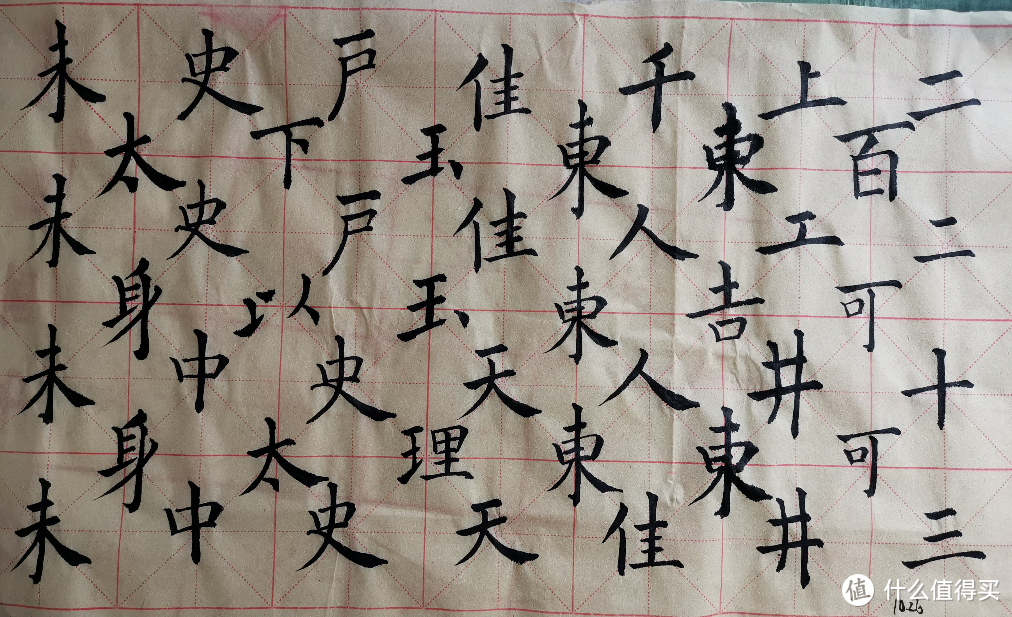 二二十三
百可可
上工井井
東吉東
千人人佳
東東東
佳佳天天
玉玉理
戸戸史史
下以太
史史中中
太身身
未未未未
10.26
值 什么值得买